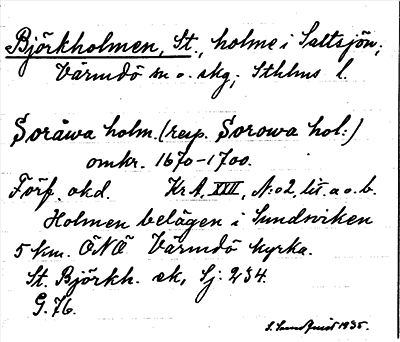 Björkholmen, St., holme i Saltsjön;
Värmdö sn o. skg; Sthlms l.
Soråwa holm. (resp. Sorowa hol:)
omkr. 1670-1700.
Förf. okd. Kr A. XVII, N:o 2 lit. a o. b.
Holmen belägen i Sundviken
5 km. ÖNÖ Värmdö kyrka.
St. Björkh. ek, Sj: 234.
G. 76.
1935.